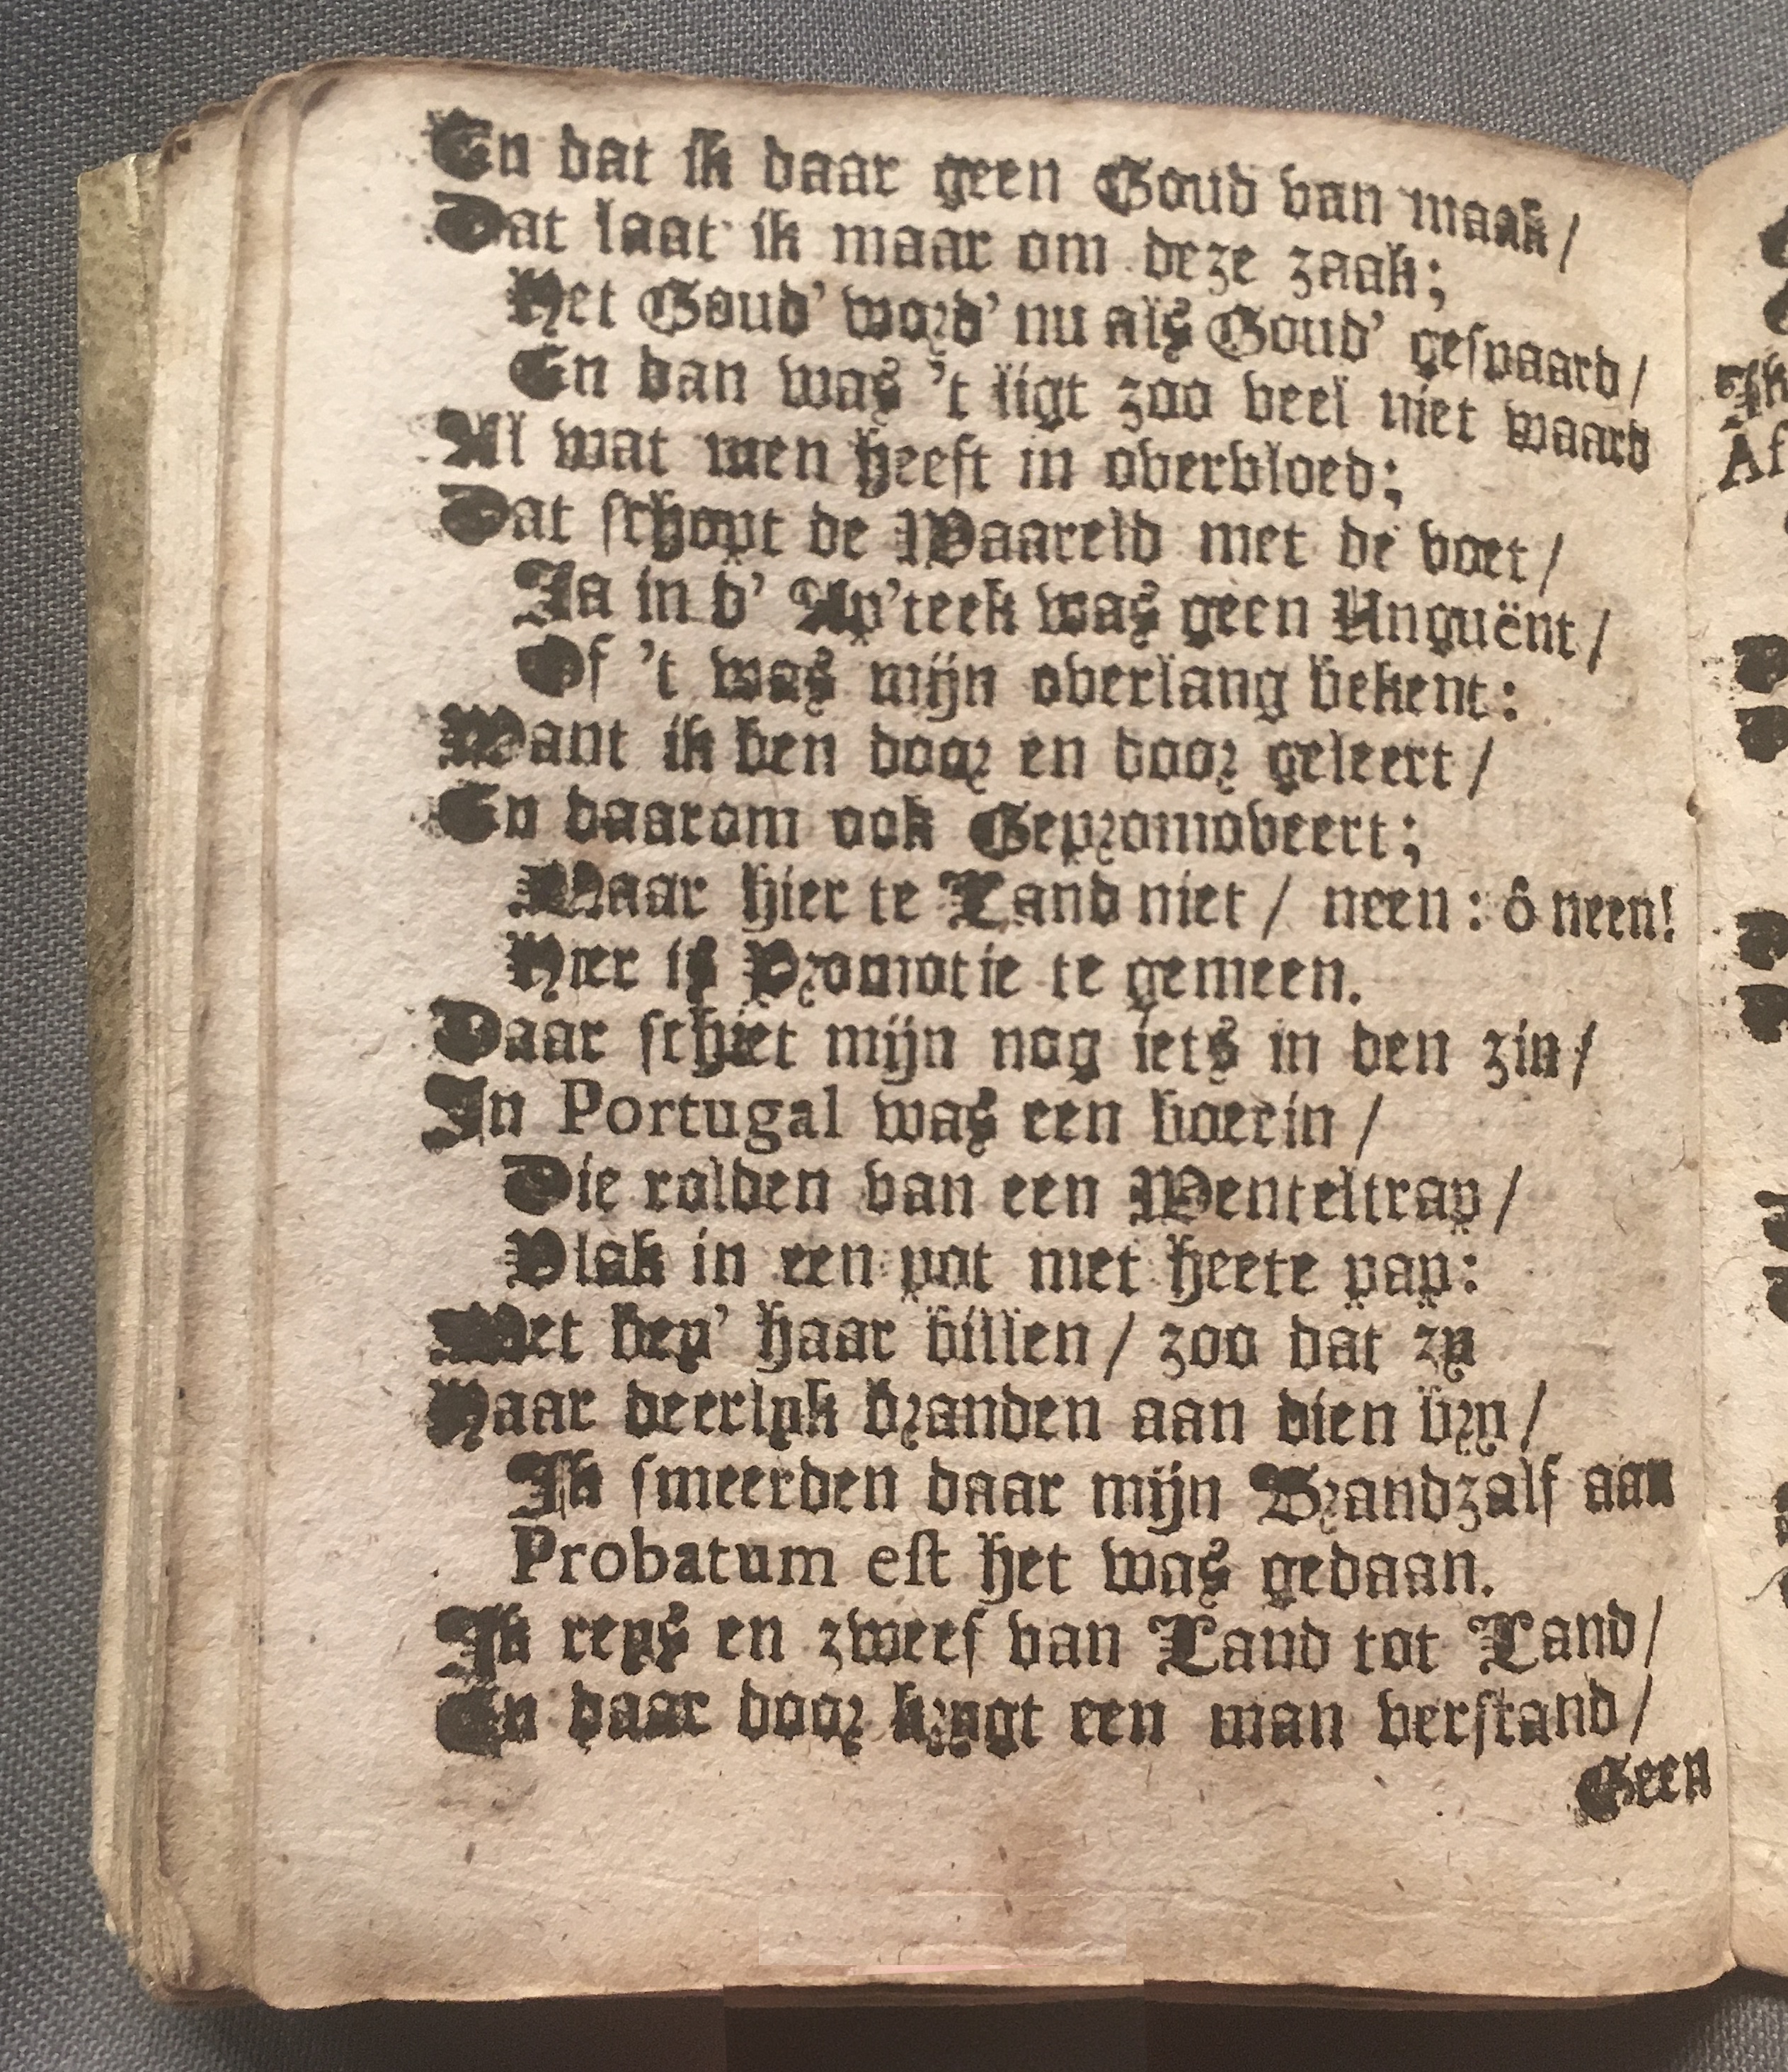 En dat ik daar geen Goud van maak /
Dat laat ik maar om deze zaak;
Het Goud' word' nu als Goud' gespaard /
En dan was 't ligt zoo veel niet waard
Al wat men heeft in overvloed;
Dat schopt de Waareld met de voet /
Ja in d' Ap'teek was geen Unguënt /
Of 't was mijn overlang bekent:
Want ik ben door en door geleert /
En daarom ook Gepromoveert;
Maar hier te Land niet / neen: ô neen!
Hier is Promotie te gemeen.
Daar schiet mijn nog iets in den zin /
In Portugal was een boerin /
Die rolden van een Wenteltrap /
Vlak in een pot met heete pap:
Met bey' haar billen / zoo dat zy
Haar deerlyk branden aan dien bry /
Ik smeerden daar mijn Brandzalf aan
Probatum est het was gedaan.
Ik reys en zweef van Land tot Land /
En daar door krygt een man verstand /
Geen